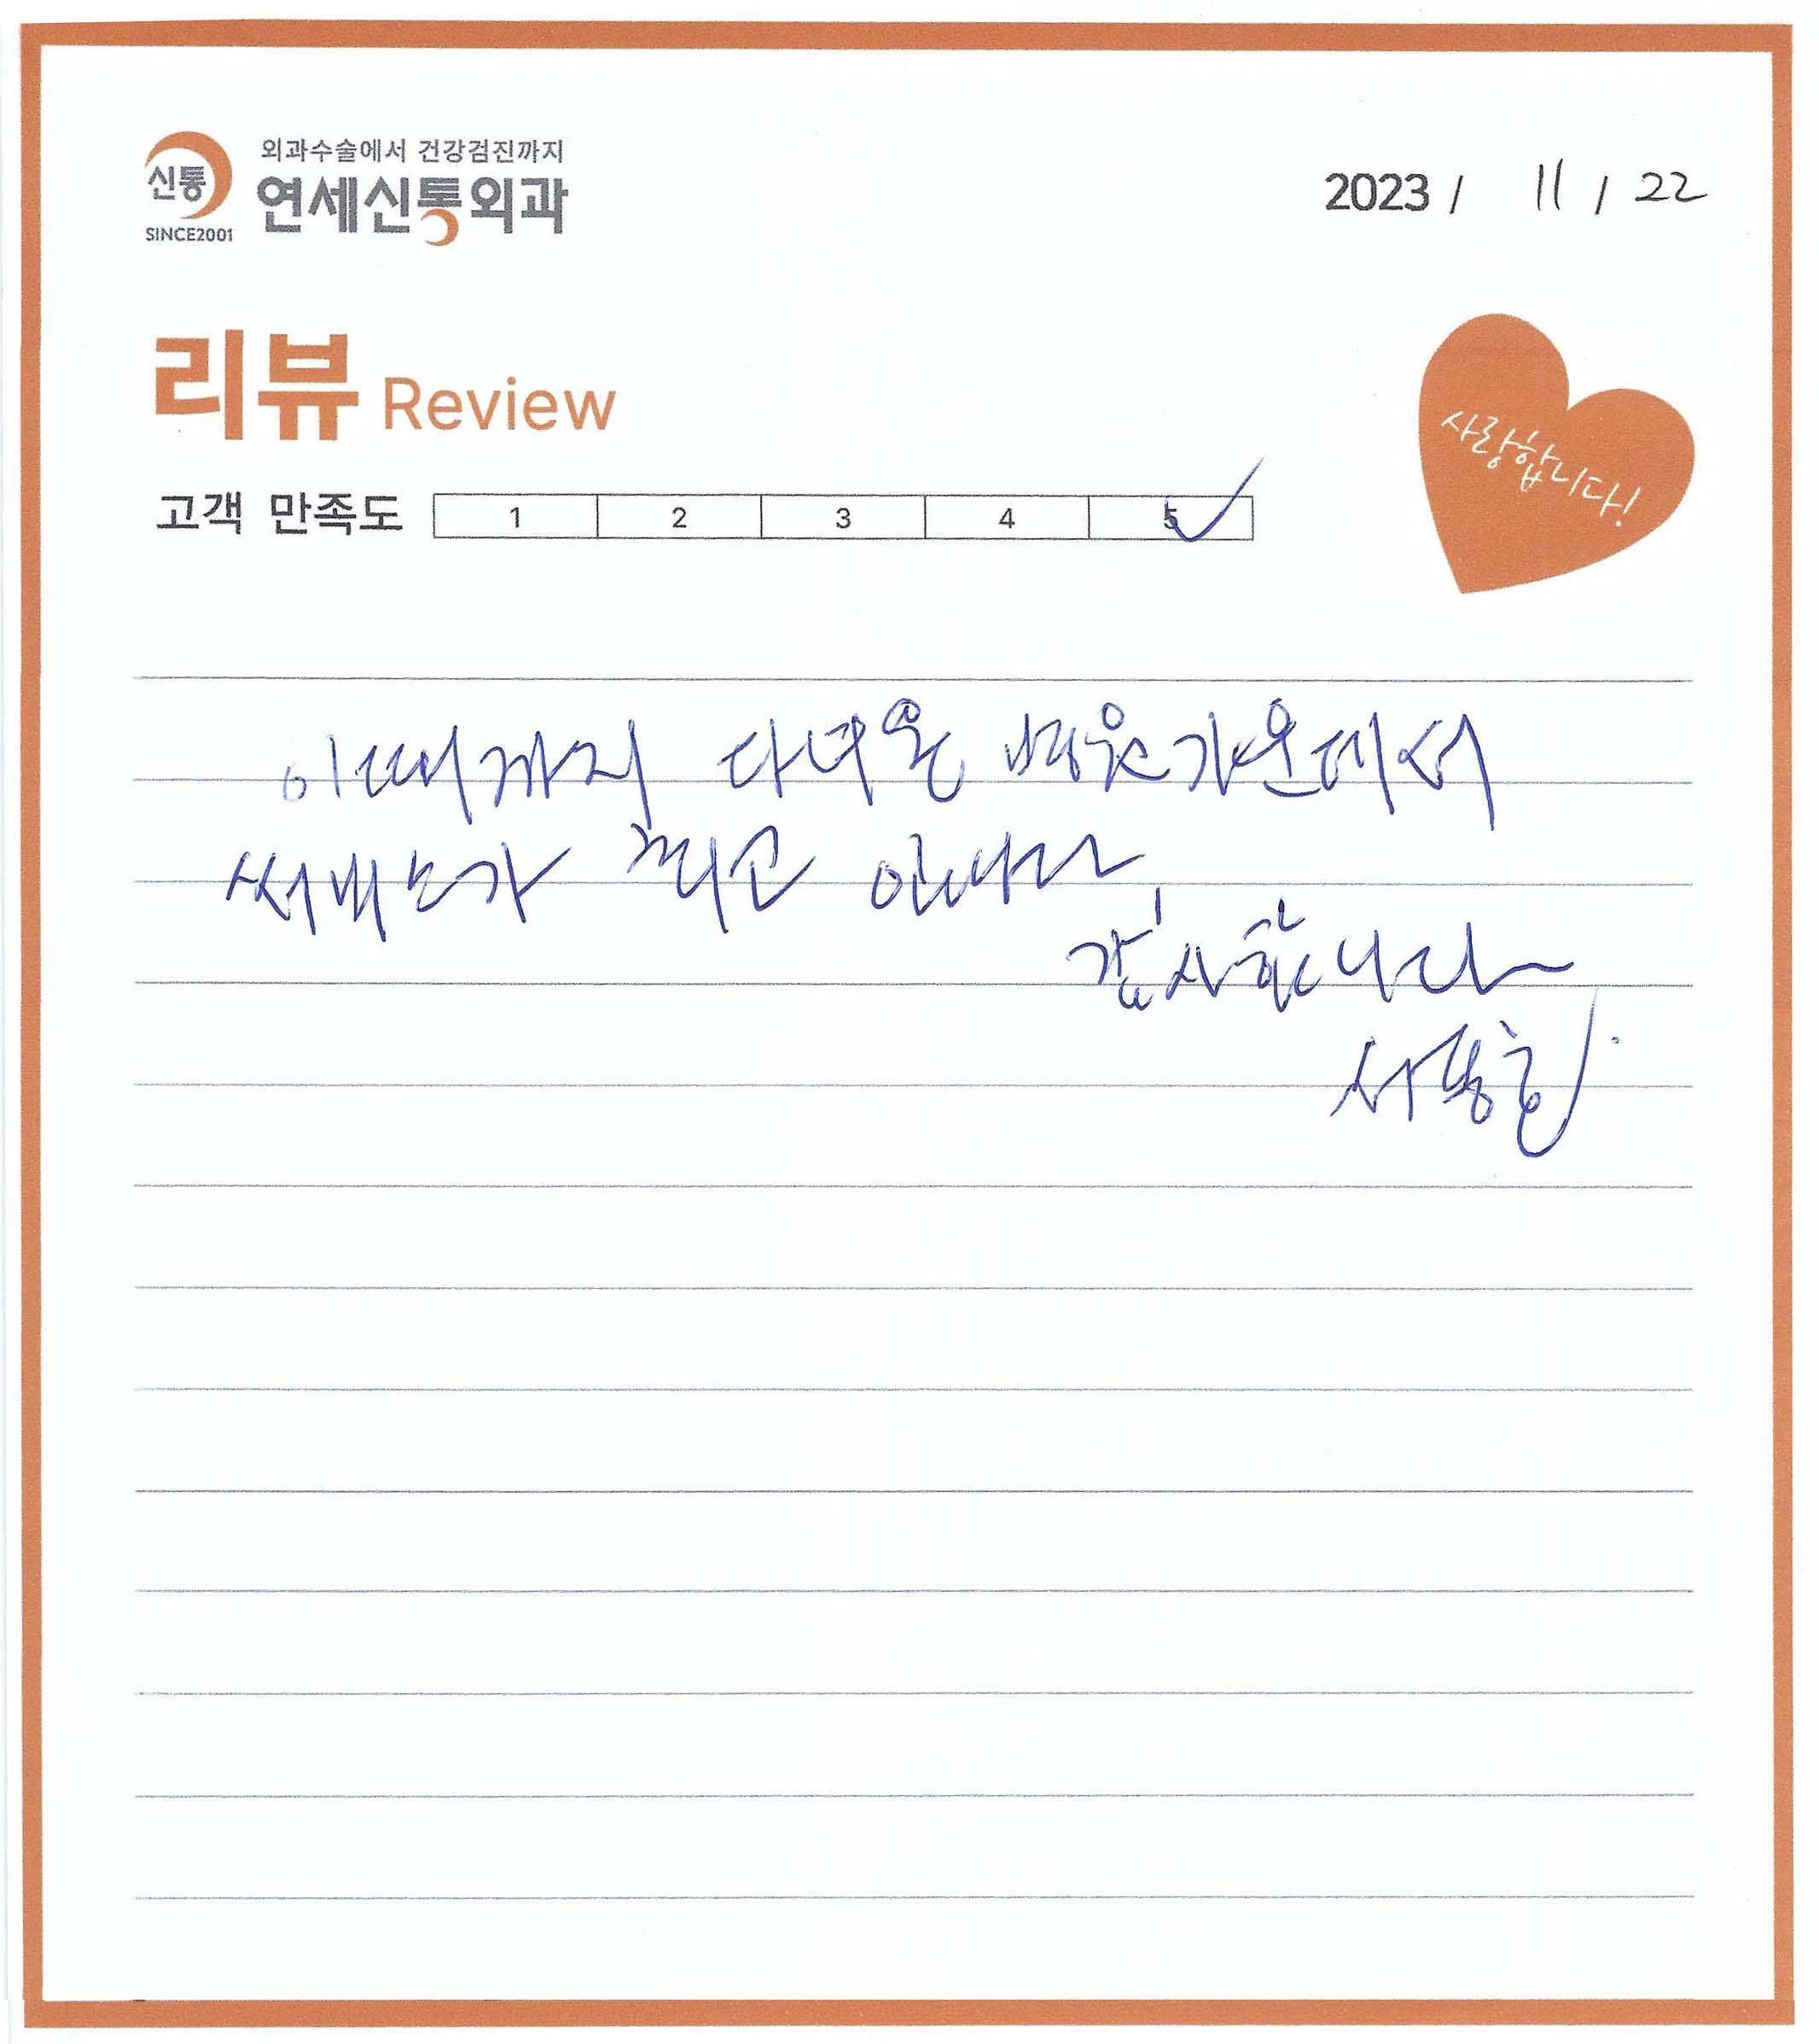 외과수술에서 건강검진까지
신통 연세신통외과
SINCE2001
2023 / 11 / 22
리뷰 Review
사랑합니다!
고객 만족도 1 2 3 4 5
이때까지 다녀온 병원가운데서
써비스가 최고 입니다
감사합니다